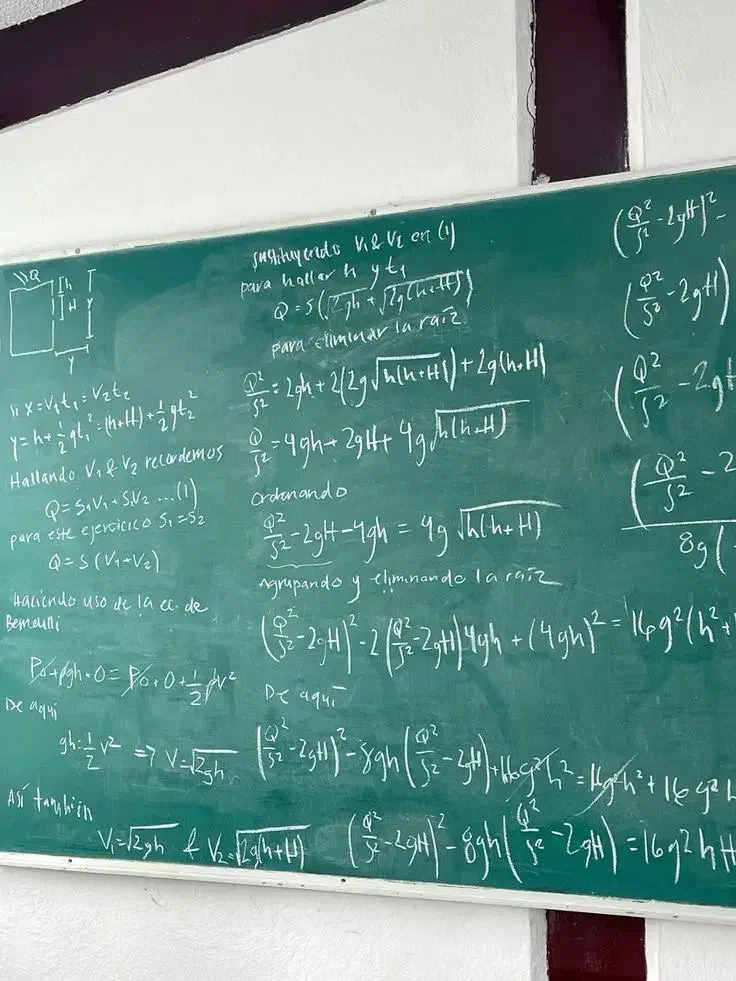 Q
h
H
Y
y
si x = V₁t₁ = V₂t₂
y = h + ½gt₁² = (h+H) + ½gt₂²
Hallando V₁ & V₂ recordemos
Q = S₁V₁ + S₂V₂ ...(1)
para este ejercicio S₁ = S₂
Q = S(V₁+V₂)
Haciendo uso de la ec. de
Bernoulli
P₀ + ρgh + 0 = P₀ + 0 + ½ρv²
De aquí
gh = ½v² => V = √2gh
Así también
V₁ = √2gh & V₂ = √2g(h+H)
sustituyendo V₁ & V₂ en (1)
para hallar h y t₁
Q = S(√2gh + √2g(h+H))
para eliminar la raíz
Q²/S² = 2gh + 2(2g√h(h+H)) + 2g(h+H)
Q/S² = 4gh + 2gH + 4g√h(h+H)
Ordenando
Q²/S² - 2gH - 4gh = 4g√h(h+H)
Agrupando y eliminando la raíz
(Q²/S² - 2gH)² - 2(Q²/S² - 2gH)4gh + (4gh)² = 16g²(h²+
De aquí
(Q²/S² - 2gH)² - 8gh(Q²/S² - 2gH) + 16g²h² = 16g²h² + 16g²h
(Q²/S² - 2gH)² - 8gh(Q²/S² - 2gH) = 16g²hH
(Q²/S² - 2gH)² -
(Q²/S² - 2gH)
(Q²/S² - 2gH
(Q²/S² - 2
8g(